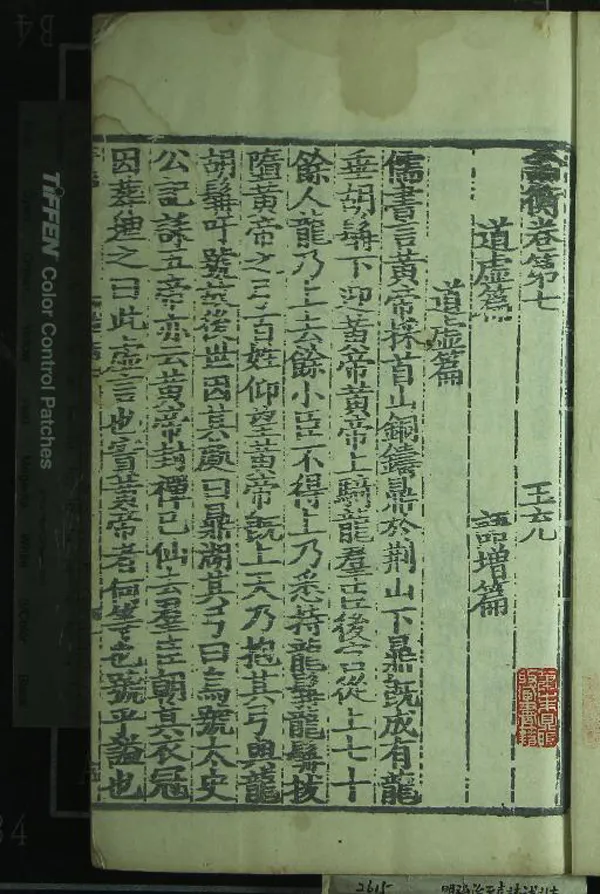 論衡卷第七
王充
道虛篇
語增篇
道虛篇
儒書言黃帝採首山銅鑄鼎於荆山下鼎既成有龍
垂胡髯下迎黃帝黃帝上騎龍羣臣後宮從上七十
餘人龍乃上去餘小臣不得上乃悉持龍髯龍髯拔
墮黃帝之弓百姓仰望黃帝既上天乃抱其弓與龍
胡髯吁號故後世因其處曰鼎湖其弓曰烏號太史
公記誄五帝亦云黃帝封禪已仙去羣臣朝其衣冠
因葬埋之曰此虛言也實黃帝者何等也號乎諡也
TIFFEN Color Control Patches
B4
2615